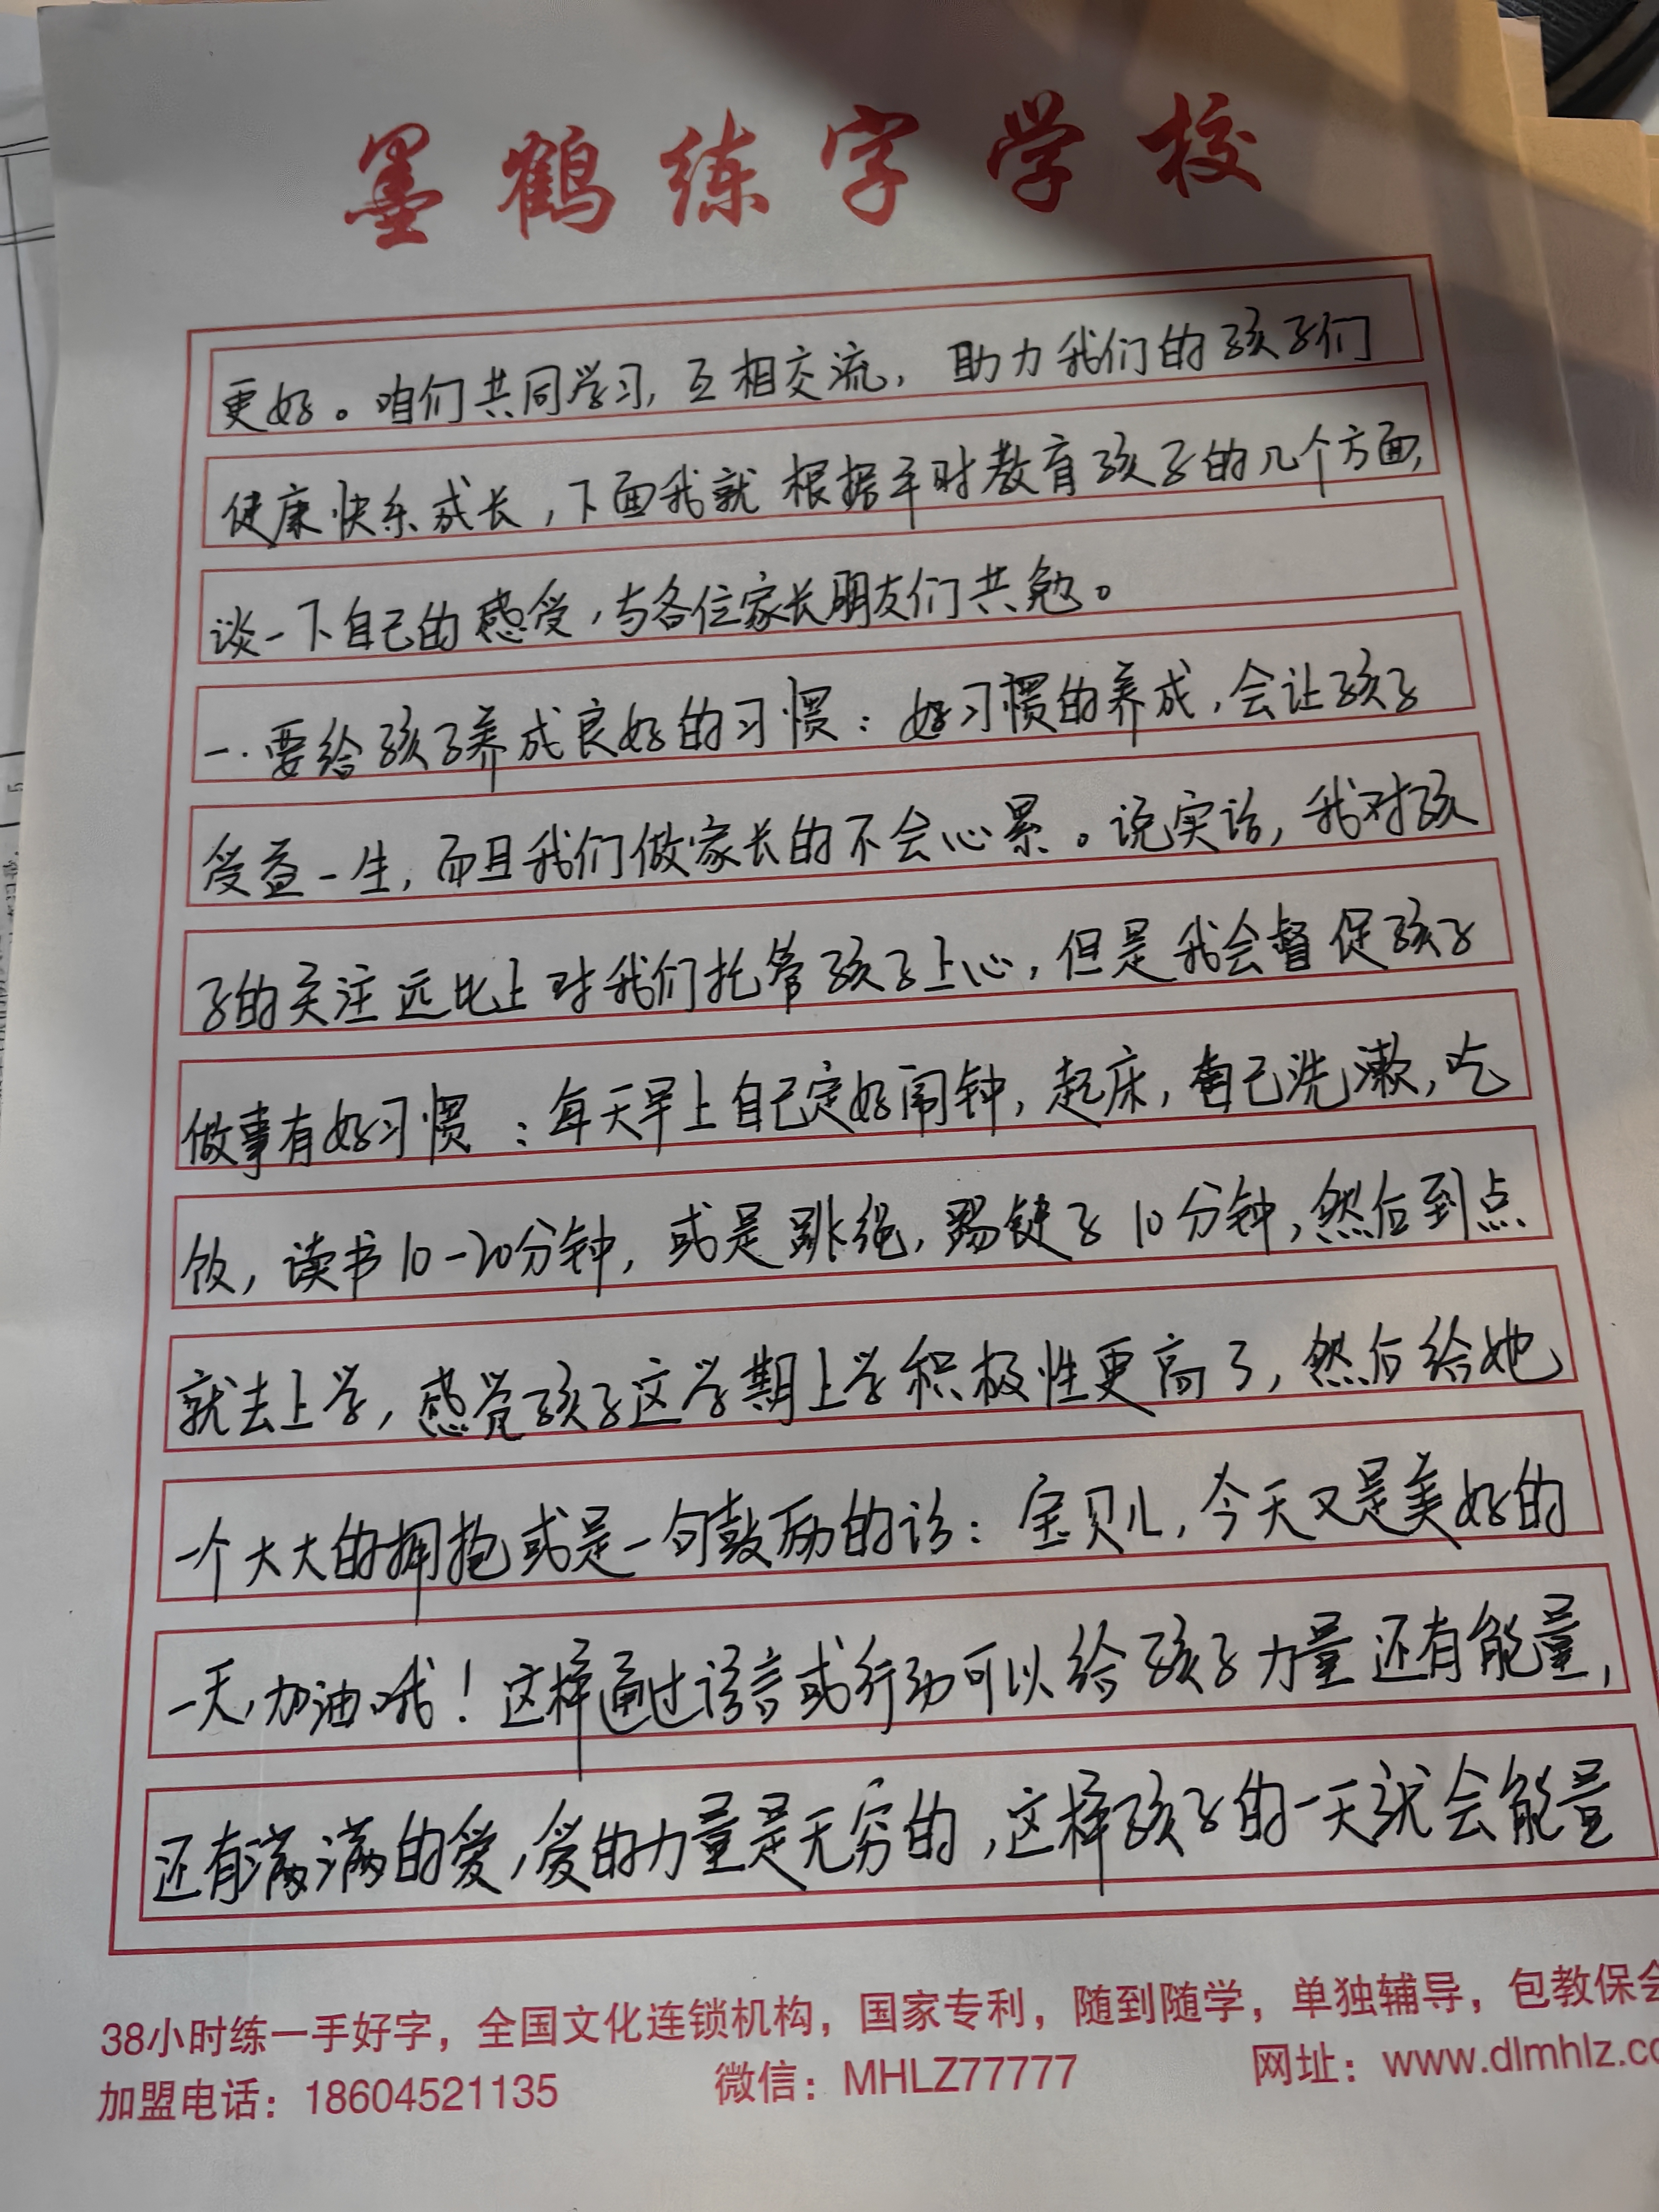 墨鹤练字学校
更好。咱们共同学习,互相交流,助力我们的孩子们
健康快乐成长,下面我就根据平时教育孩子的几个方面,
谈一下自己的感受,与各位家长朋友们共勉。
一.要给孩子养成良好的习惯:好习惯的养成,会让孩子
受益一生,而且我们做家长的不会心累。说实话,我对孩
子的关注远比上对我们托管孩子上心,但是我会督促孩子
做事有好习惯:每天早上自己定好闹钟,起床,自己洗漱,吃
饭,读书10-20分钟,或是跳绳,踢键子10分钟,然后到点
就去上学,感觉孩子这学期上学积极性更高了,然后给她
一个大大的拥抱或是一句鼓励的话:宝贝儿,今天又是美好的
一天,加油哦!这样通过语言或行动可以给孩子力量还有能量,
还有满满的爱,爱的力量是无穷的,这样孩子的一天就会能量
38小时练一手好字,全国文化连锁机构,国家专利,随到随学,单独辅导,包教保会
加盟电话:18604521135 微信:MHLZ77777 网址:www.dlmhlz.co